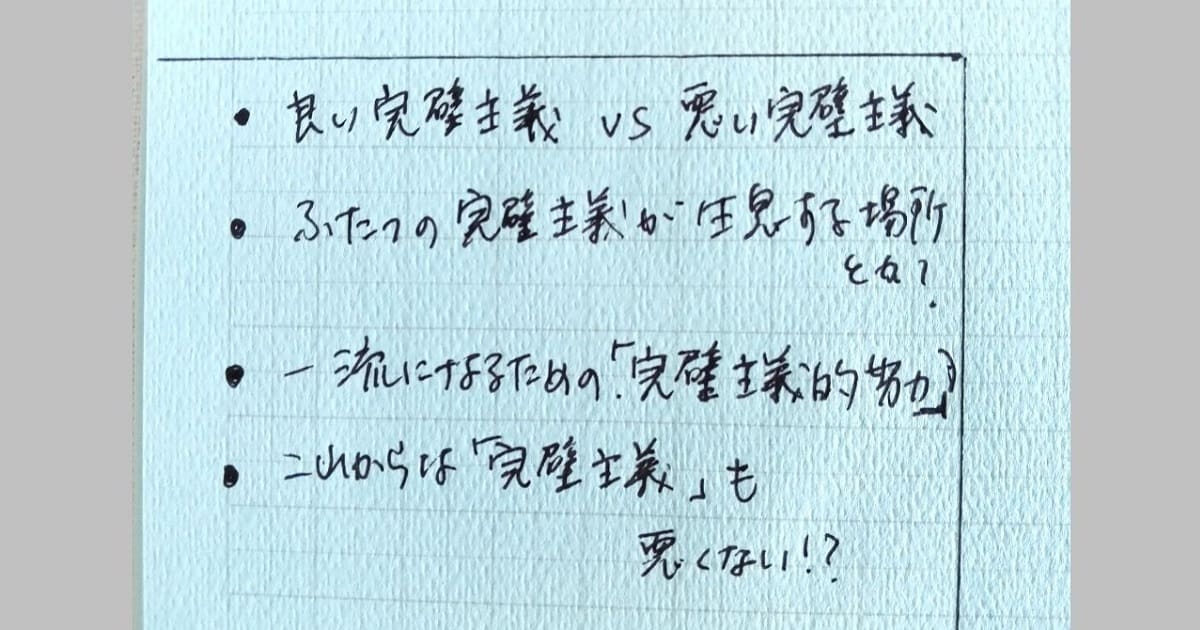 • 良い完璧主義 vs 悪い完璧主義
• ふたつの完璧主義が生息する場所
とは?
• 一流になるための「完璧主義的努力」
• これからは「完璧主義」も
悪くない!?